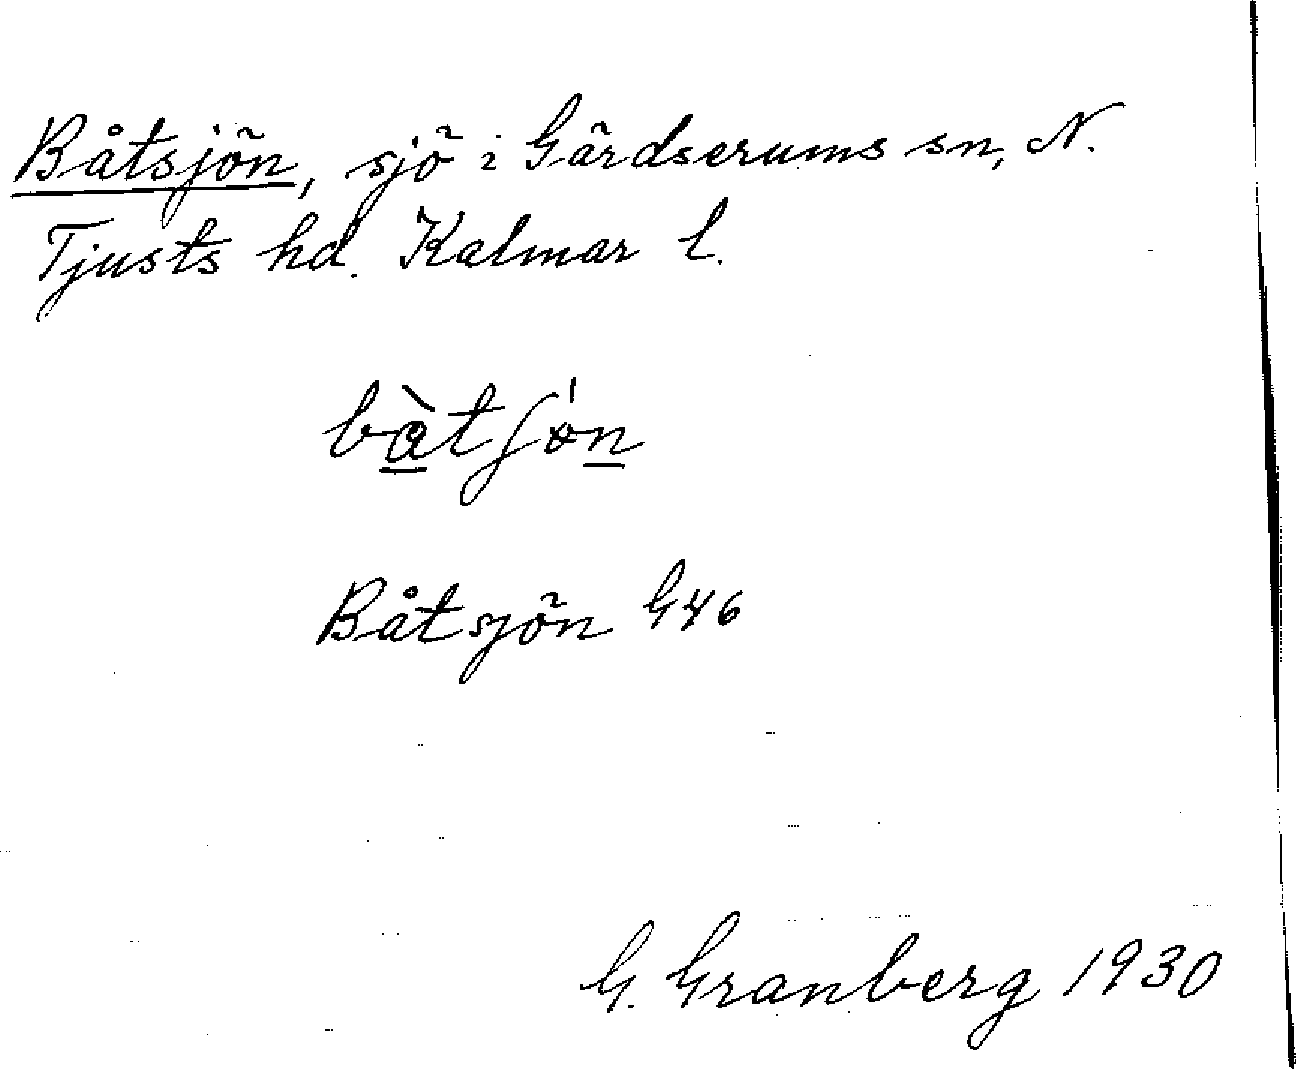 Båtsjön, sjö i Gärdserums sn, N.
Tjusts hd. Kalmar l.
bàtʃön
Båtsjön G46
G. Granberg 1930